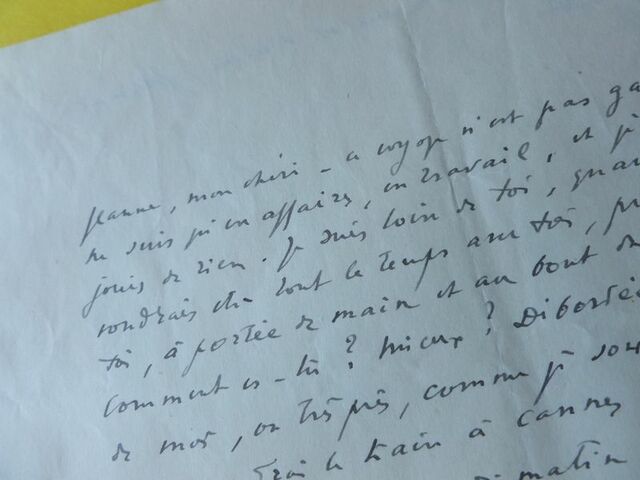 Jeanne, mon chéri - ce voyage n'est pas ga
ne suis qu'en affaires, en travail, et j
jouis de rien. Je suis loin de toi, quan
voudrais être tout le temps avec toi, pr
toi, à portée de main et au bout de
comment es-tu? mieux?
de moi, ou très près, comme je sou
le train à cannes
matin